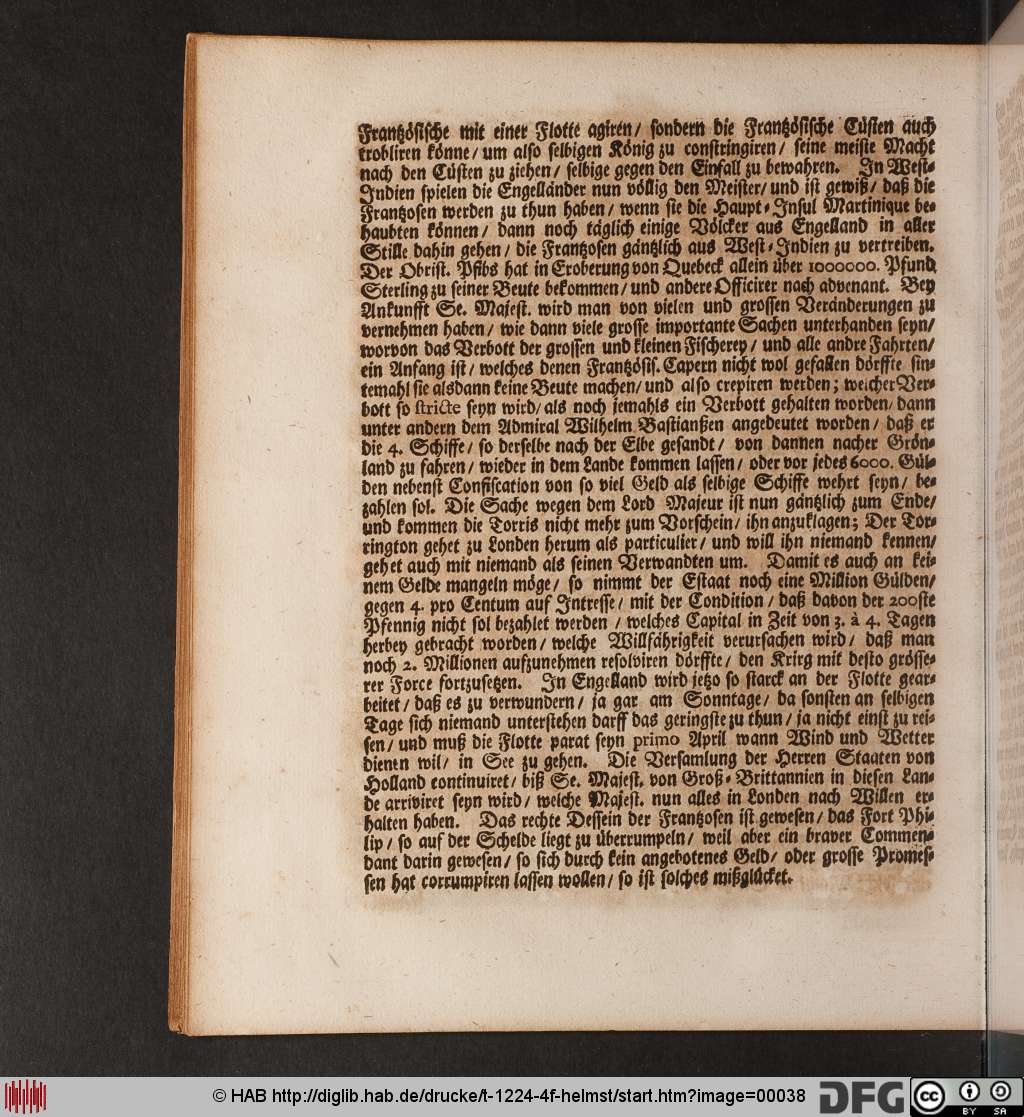 Frantzösische mit einer Flotte agiren/ sondern die Frantzösische Cüsten auch
trobliren könne/ um also selbigen König zu constringiren/ seine meiste Macht
nach den Cüsten zu ziehen/ selbige gegen den Einfall zu bewahren. In West-
Indien spielen die Engelländer nun völlig den Meister/ und ist gewiß/ daß die
Frantzosen werden zu thun haben/ wenn sie die Haupt-Insul Martinique be-
haubten können/ dann noch täglich einige Völcker aus Engelland in aller
Stille dahin gehen/ die Frantzosen gäntzlich aus West-Indien zu vertreiben.
Der Obrist. Pfibs hat in Eroberung von Quebeck allein über 1000000. Pfund
Sterling zu seiner Beute bekommen/ und andere Officirer nach advenant. Bey
Ankunfft Se. Majest. wird man von vielen und grossen Veränderungen zu
vernehmen haben/ wie dann viele grosse importante Sachen unterhanden seyn/
worvon das Verbott der grossen und kleinen Fischerey/ und alle andre Fahrten/
ein Anfang ist/ welches denen Frantzösis. Capern nicht wol gefallen dörffte sin-
temahl sie alsdann keine Beute machen/ und also crepiren werden; welcher Ver-
bott so stricte seyn wird/ als noch jemahls ein Verbott gehalten worden/ dann
unter andern dem Admiral Wilhelm Bastianßen angedeutet worden/ daß er
die 4. Schiffe/ so derselbe nach der Elbe gesandt/ von dannen nacher Grön-
land zu fahren/ wieder in dem Lande kommen lassen/ oder vor jedes 6000. Gül-
den nebenst Confiscation von so viel Geld als selbige Schiffe wehrt seyn/ be-
zahlen sol. Die Sache wegen dem Lord Majeur ist nun gäntzlich zum Ende/
und kommen die Torris nicht mehr zum Vorschein/ ihn anzuklagen; Der Tor-
rington gehet zu Londen herum als particulier/ und will ihn niemand kennen/
gehet auch mit niemand als seinen Verwandten um. Damit es auch an kei-
nem Gelde mangeln möge/ so nimmt der Estaat noch eine Million Gülden/
gegen 4. pro Centum auf Intresse/ mit der Condition/ daß davon der 200ste
Pfennig nicht sol bezahlet werden/ welches Capital in Zeit von 3. à 4. Tagen
herbey gebracht worden/ welche Willfährigkeit verursachen wird/ daß man
noch 2. Millionen aufzunehmen resolviren dörffte/ den Krirg mit desto grösse-
rer Force fortzusetzen. In Engelland wird jetzo so starck an der Flotte gear-
beitet/ daß es zu verwundern/ ja gar am Sonntage/ da sonsten an selbigen
Tage sich niemand unterstehen darff das geringste zu thun/ ja nicht einst zu rei-
sen/ und muß die Flotte parat seyn primo April wann Wind und Wetter
dienen wil/ in See zu gehen. Die Versamlung der Herren Staaten von
Holland continuiret/ biß Se. Majest. von Groß-Brittannien in diesen Lan-
de arriviret seyn wird/ welche Majest. nun alles in Londen nach Willen er-
halten haben. Das rechte Dessein der Frantzosen ist gewesen/ das Fort Phi-
lip/ so auf der Schelde liegt zu überrumpeln/ weil aber ein braver Commen-
dant darin gewesen/ so sich durch kein angebotenes Geld/ oder grosse Promes-
sen hat corrumpiren lassen wollen/ so ist solches mißglücket.
© HAB http://diglib.hab.de/drucke/t-1224-4f-helmst/start.htm?image=00038
DFG
cc BY SA